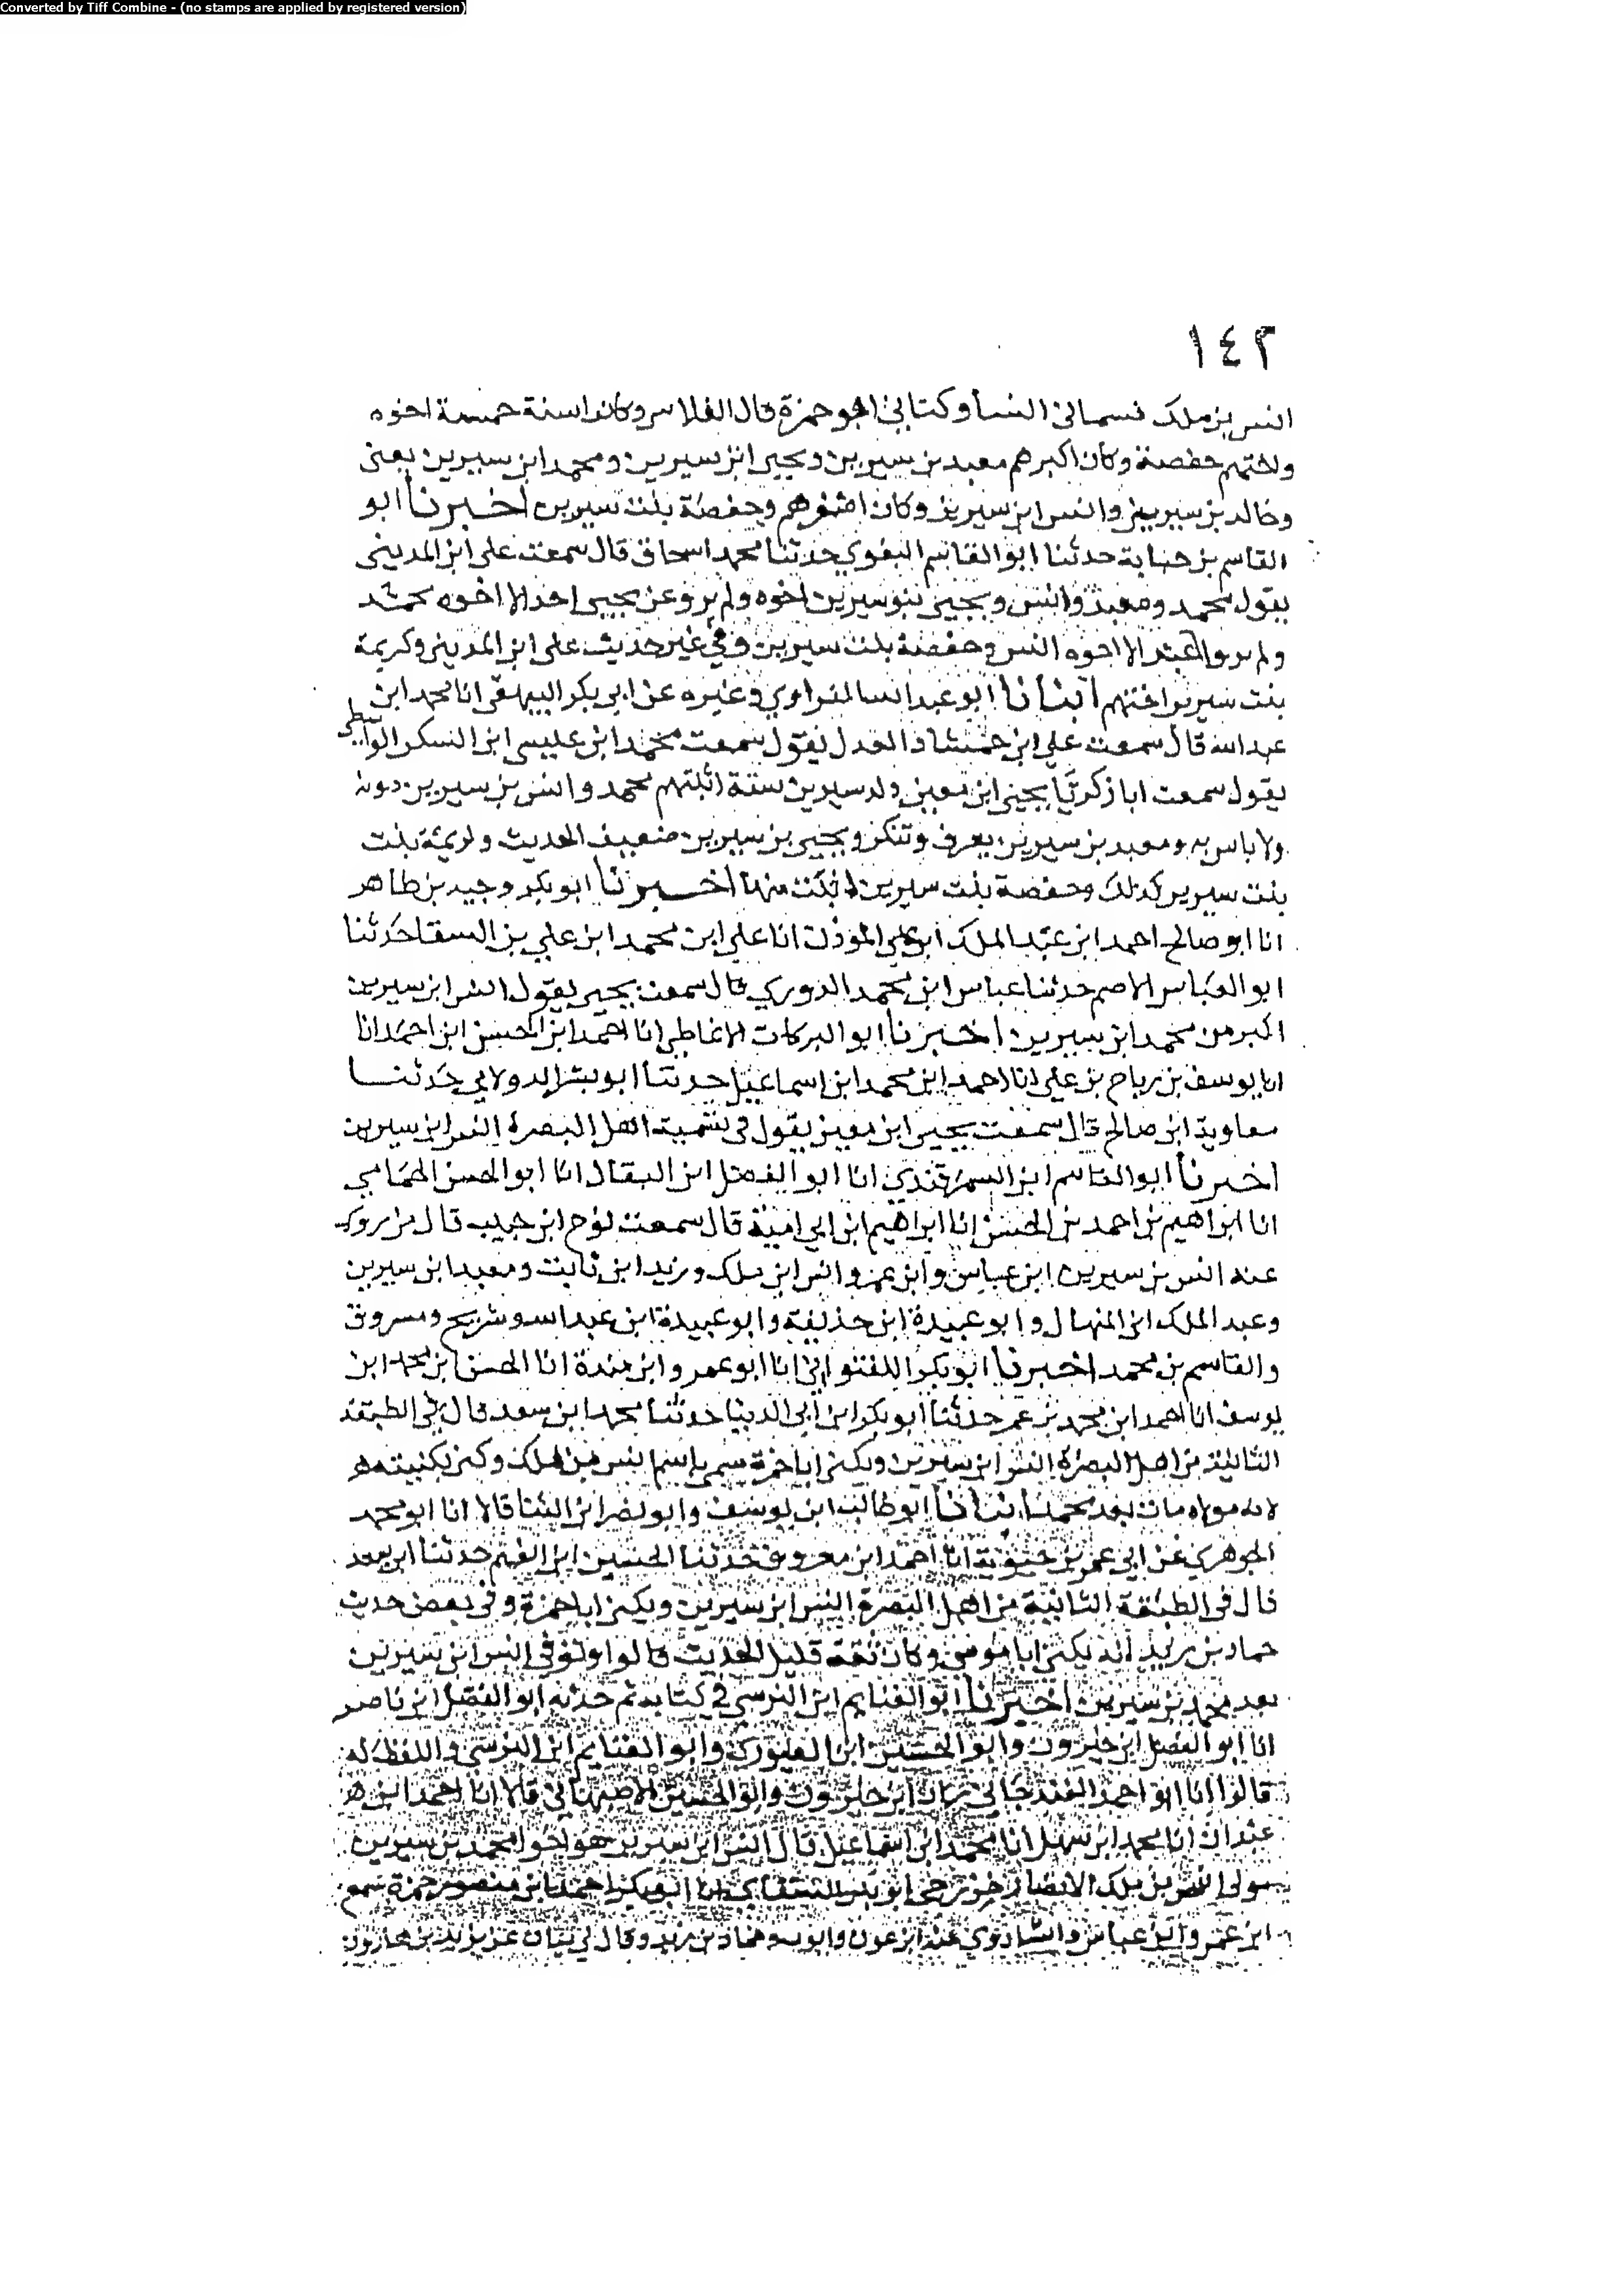 Converted by Tiff Combine - (no stamps are applied by registered version)
١٤٢
انس بن ملك فسماني انسا وكناني ابو حمزة قال الفلاس وكانوا ستة خمسة اخوه
واختهم حفصة وكان اكبرهم معبد بن سيرين ويحيى ابن سيرين ومحمد ابن سيرين يعني
وخالد بن سيرين وانس ابن سيرين وكان اصغرهم وحفصة بنت سيرين اخبرنا ابو
القاسم بن حبابة حدثنا ابو القاسم البغوي حدثنا محمد اسحاق قال سمعت علي ابن المديني
يقول محمد ومعبد وانس ويحيى بنو سيرين اخوه ولم يرو عن يحيى احد الا اخوه محمد
ولم يرو الا اخوه انس وحفصة بنت سيرين وفي غير حديث علي ابن المديني وكريمة
بنت سيرين اختهم انبانا ابو عبد الله الفراوي وغيره عن ابي بكر البيهقي انا محمد ابن
عبد الله قال سمعت علي ابن حمشاد العدل يقول سمعت محمد ابن عيسى ابن السكن الواسطي
يقول سمعت ابا زكريا يحيى ابن معين ولد سيرين ستة اثبتهم محمد وانس بن سيرين دونه
ولا باس به ومعبد بن سيرين يعرف وتنكر ويحيى بن سيرين ضعيف الحديث وكريمة بنت
بنت سيرين كذلك وحفصة بنت سيرين اثبت منها اخبرنا ابو بكر وجيه بن طاهر
انا ابو صالح احمد ابن عبد الملك ابن علي الموذن انا علي ابن محمد ابن علي بن السقا حدثنا
ابو العباس الاصم حدثنا عباس ابن محمد الدوري قال سمعت يحيى يقول انس ابن سيرين
اكبر من محمد ابن سيرين اخبرنا ابو البركات الانماطي انا احمد ابن الحسن ابن احمد انا
انا يوسف بن رباح بن علي انا احمد ابن محمد ابن اسماعيل حدثنا ابو بشر الدولابي حدثنا
معاوية ابن صالح قال سمعت يحيى ابن معين يقول في تسمية اهل البصرة انس ابن سيرين
اخبرنا ابو القاسم ابن السمرقندي انا ابو الفضل ابن البقال انا ابو الحسن الحمامي
انا ابراهيم بن احمد بن الحسن انا ابراهيم ابن ابي امية قال سمعت نوح ابن حبيب قال من روى
عنه انس بن سيرين ابن عباس وابن عمر وانس ابن ملك وزيد ابن ثابت ومعبد ابن سيرين
وعبد الملك ابن المنهال وابو عبيدة ابن حذيفة وابو عبيدة ابن عبد الله وشريح ومسروق
والقاسم بن محمد اخبرنا ابو بكر اللفتواني انا ابو عمرو ابن مندة انا الحسن ابن محمد ابن
يوسف انا احمد ابن محمد بن عمر حدثنا ابو بكر ابن ابي الدنيا حدثنا محمد ابن سعد قال في الطبقة
الثانية من اهل البصرة انس ابن سيرين ويكنى ابا حمزة سمي باسم انس بن ملك وكني بكنيته
لانه مولاه مات بعد محمد انبانا ابو طالب ابن يوسف وابو نصر ابن البنا قالا انا ابو محمد
الجوهري عن ابي عمر بن حيوية انا احمد ابن معروف حدثنا الحسين ابن الفهم حدثنا ابن سعد
قال في الطبقة الثانية من اهل البصرة انس ابن سيرين ويكنى ابا حمزة وفي بعض حديث
حماد بن زيد انه يكنى ابا موسى وكان ثقة قليل الحديث قالوا وتوفي انس ابن سيرين
بعد محمد بن سيرين اخبرنا ابو الغنايم ابن النرسي في كتابه ثم حدثنا ابو الفضل ابن ناصر
انا ابو الفضل ابن خيرون وابو الحسين ابن الطيوري وابو الغنايم ابن النرسي واللفظ له
قالوا انا ابو احمد الغندجاني زاد ابن خيرون وابو الحسين الاصبهاني قالا انا احمد ابن
عبدان انا محمد ابن سهل انا محمد ابن اسماعيل قال انس ابن سيرين هو اخو محمد بن سيرين
مولى انس بن ملك الانصاري
ابن عمر وابن عباس ابن عون وايوب وحماد بن زيد وقال لي عن يزيد بن هارون